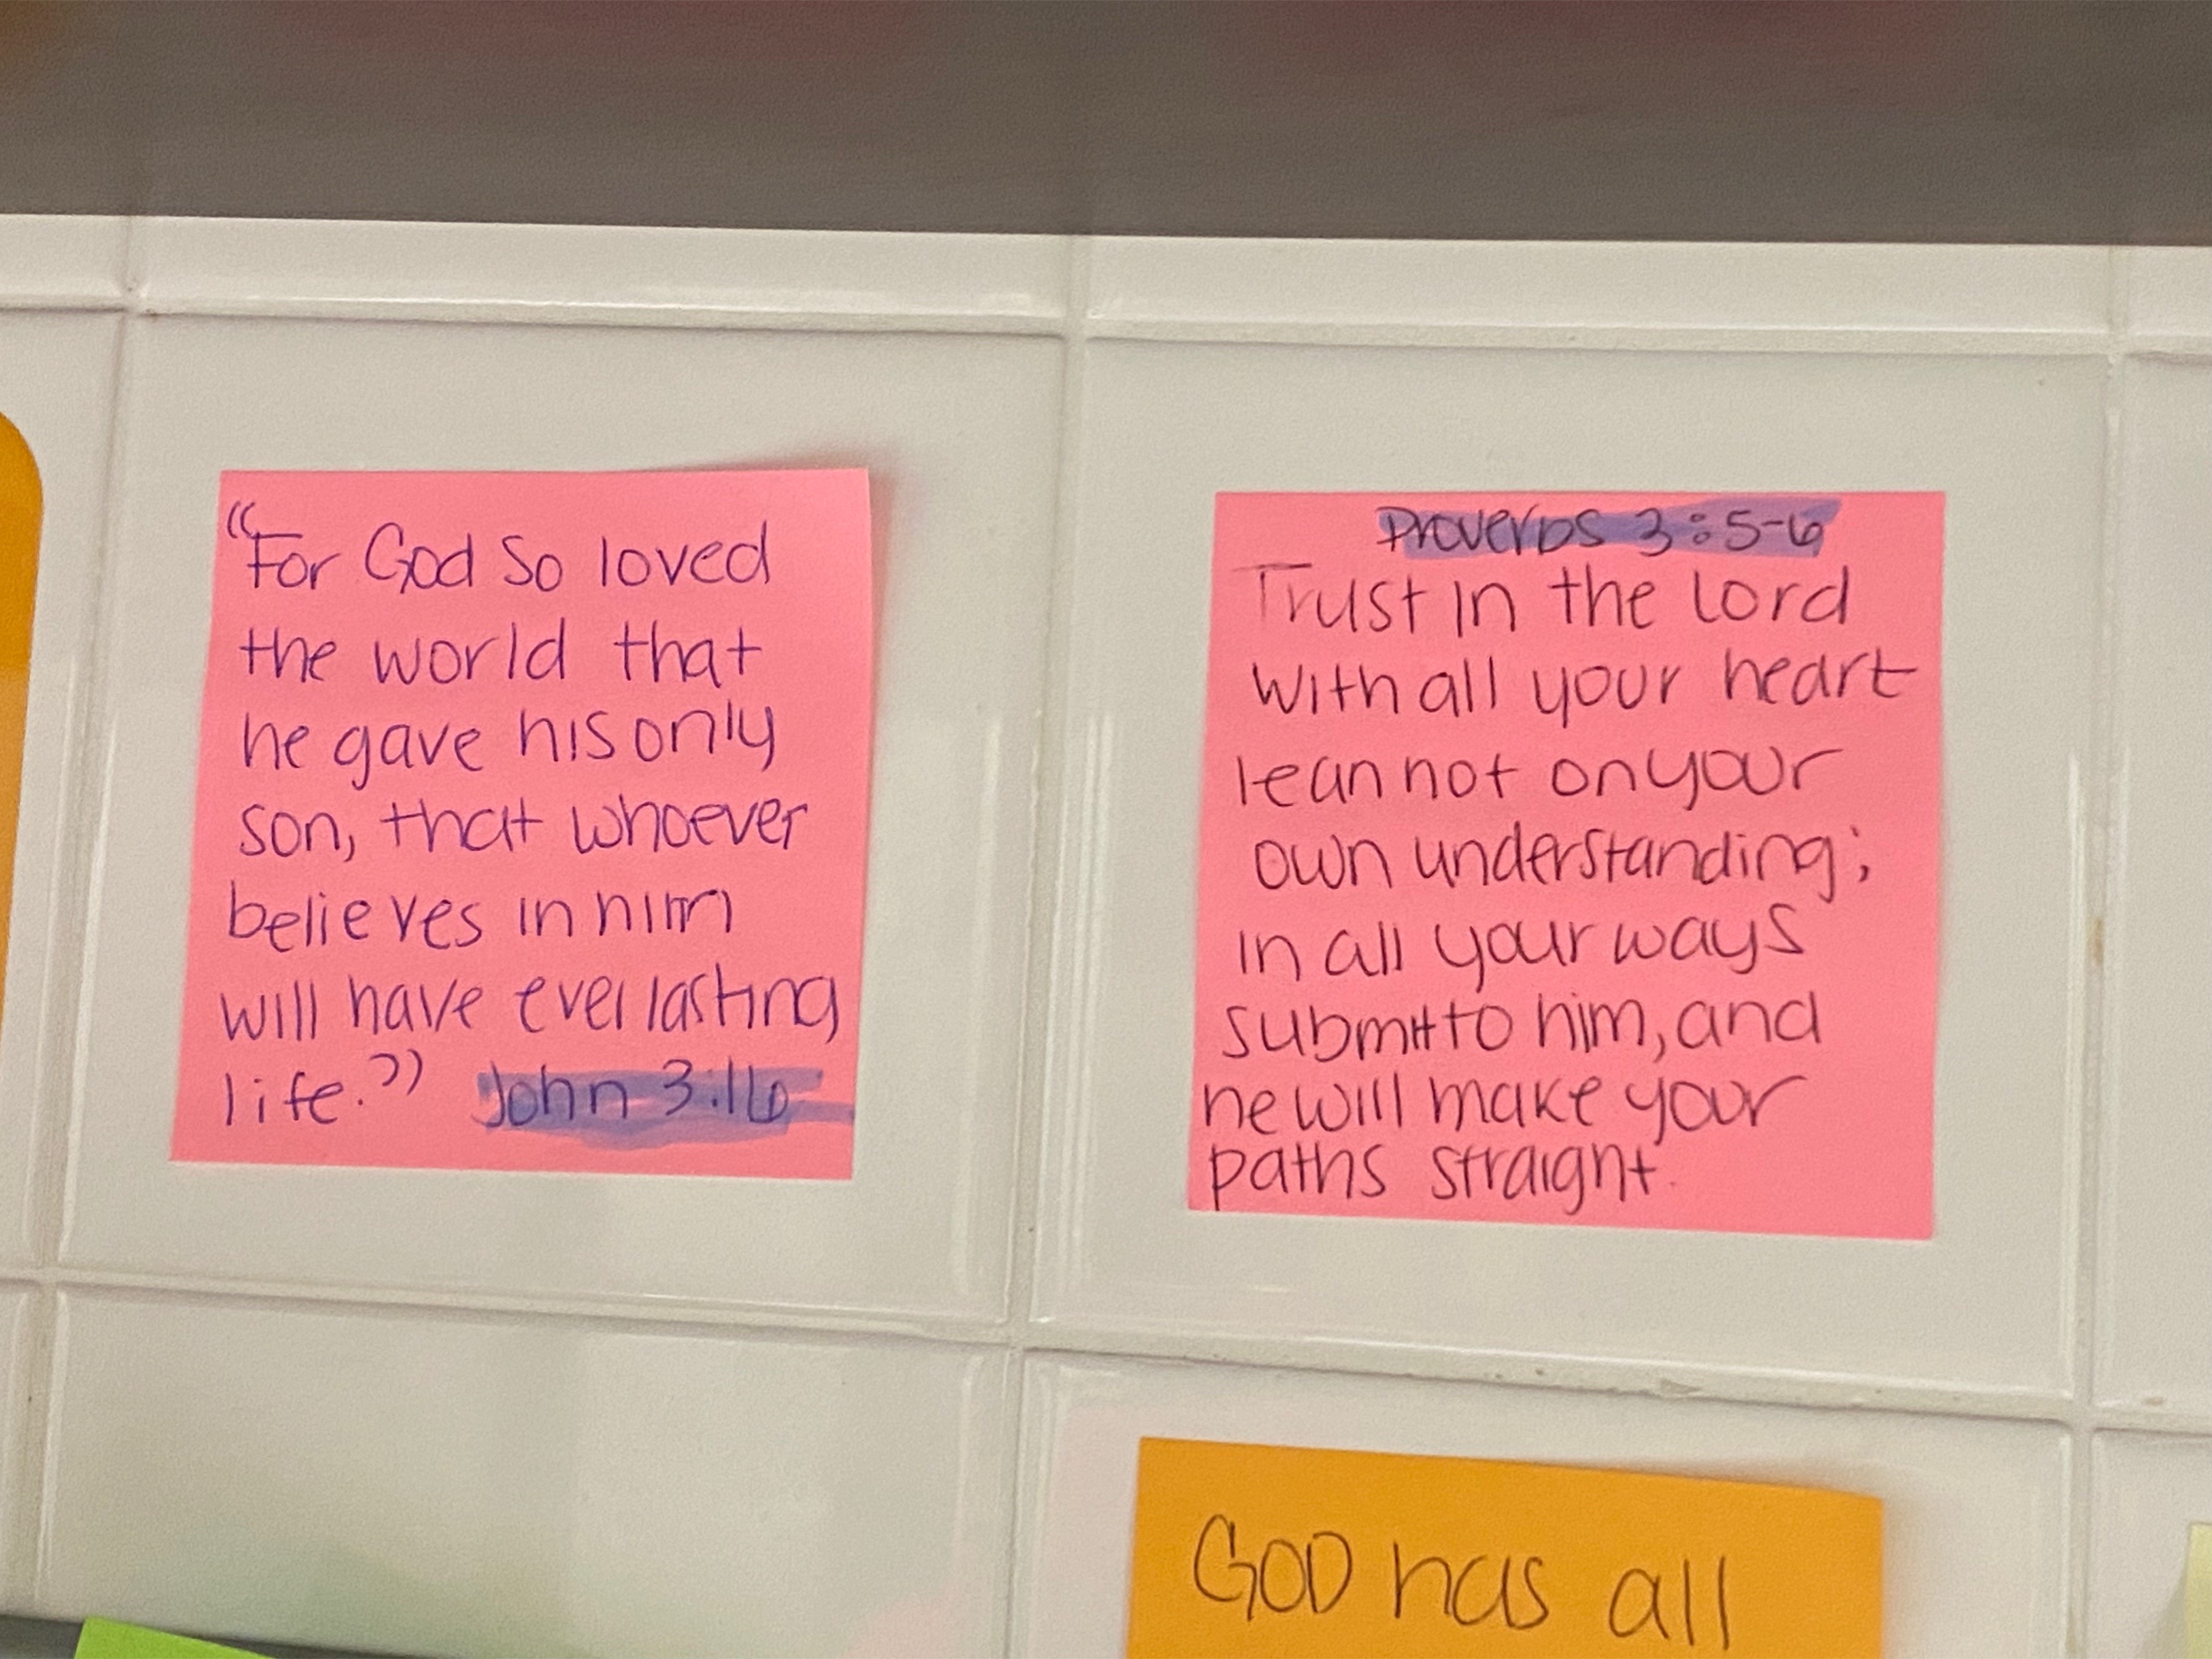 "For God so loved
the world that
he gave his only
son, that whoever
believes in him
will have everlasting
life." John 3:16
Proverbs 3:5-6
Trust in the Lord
with all your heart
lean not on your
own understanding;
in all your ways
submit to him, and
he will make your
paths straight.
GOD has all